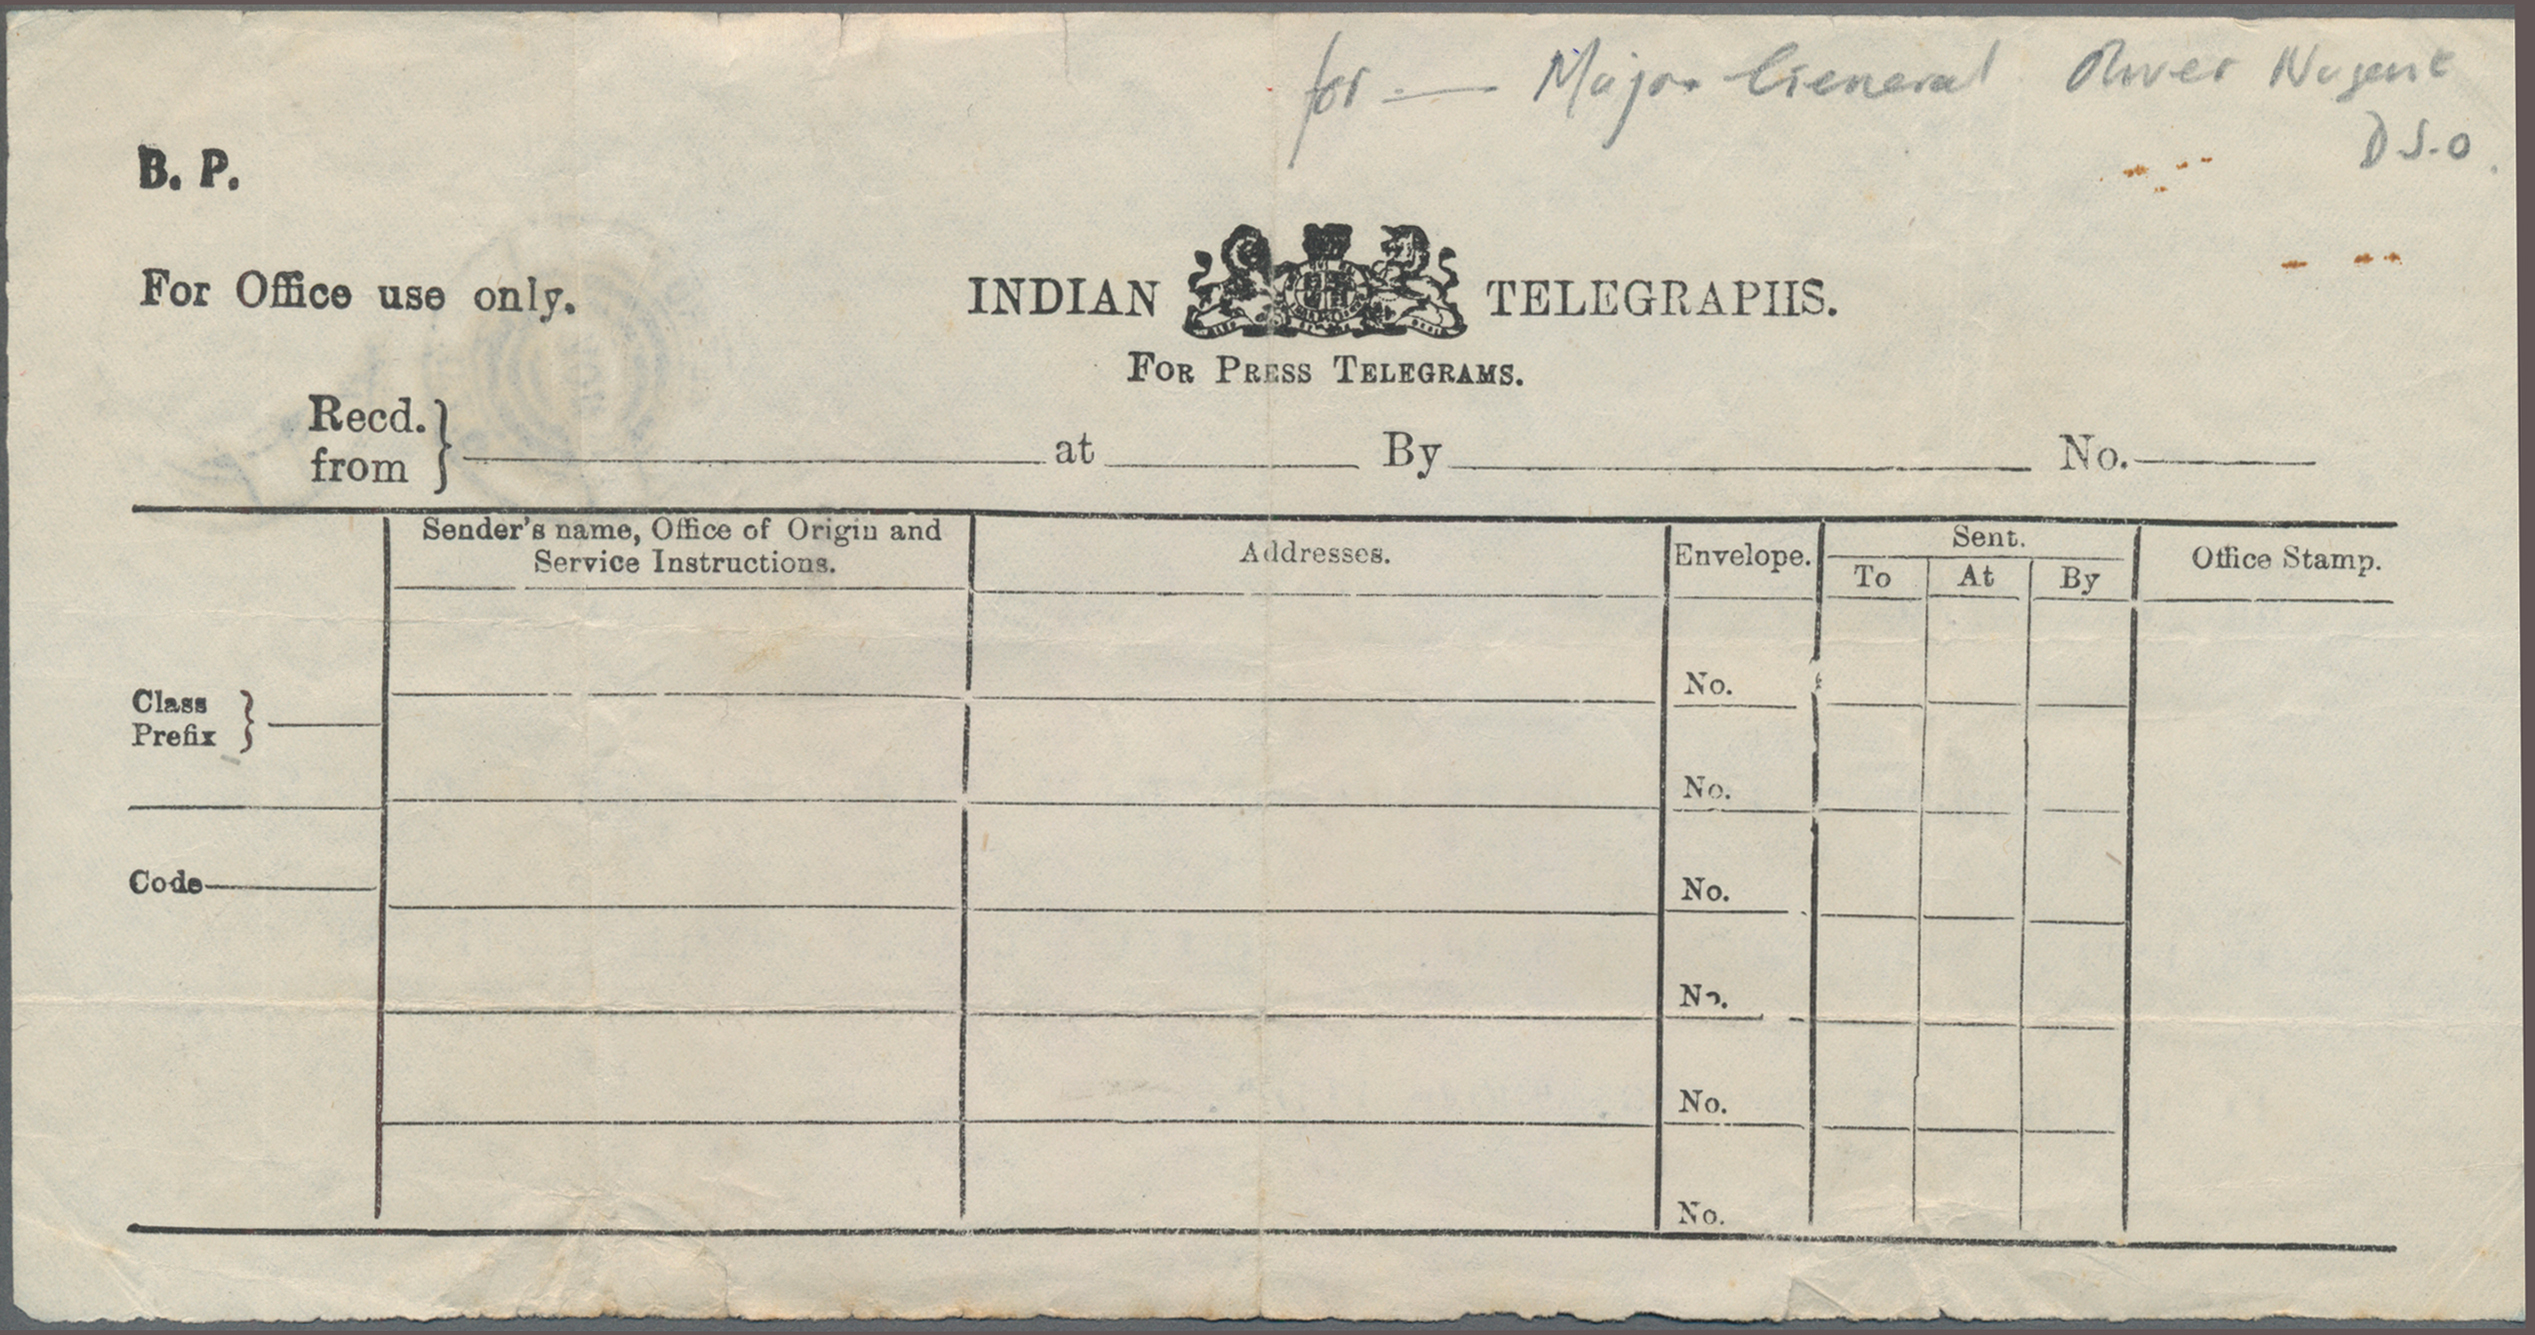 for — Major General Oliver Nugent
D.S.O.
B. P.
For Office use only.
INDIAN TELEGRAPHS.
FOR PRESS TELEGRAMS.
Recd. from } at By No.
Sender's name, Office of Origin and Service Instructions.
Addresses.
Envelope.
Sent.
To At By
Office Stamp.
No.
Class Prefix }
No.
Code
No.
No.
No.
No.